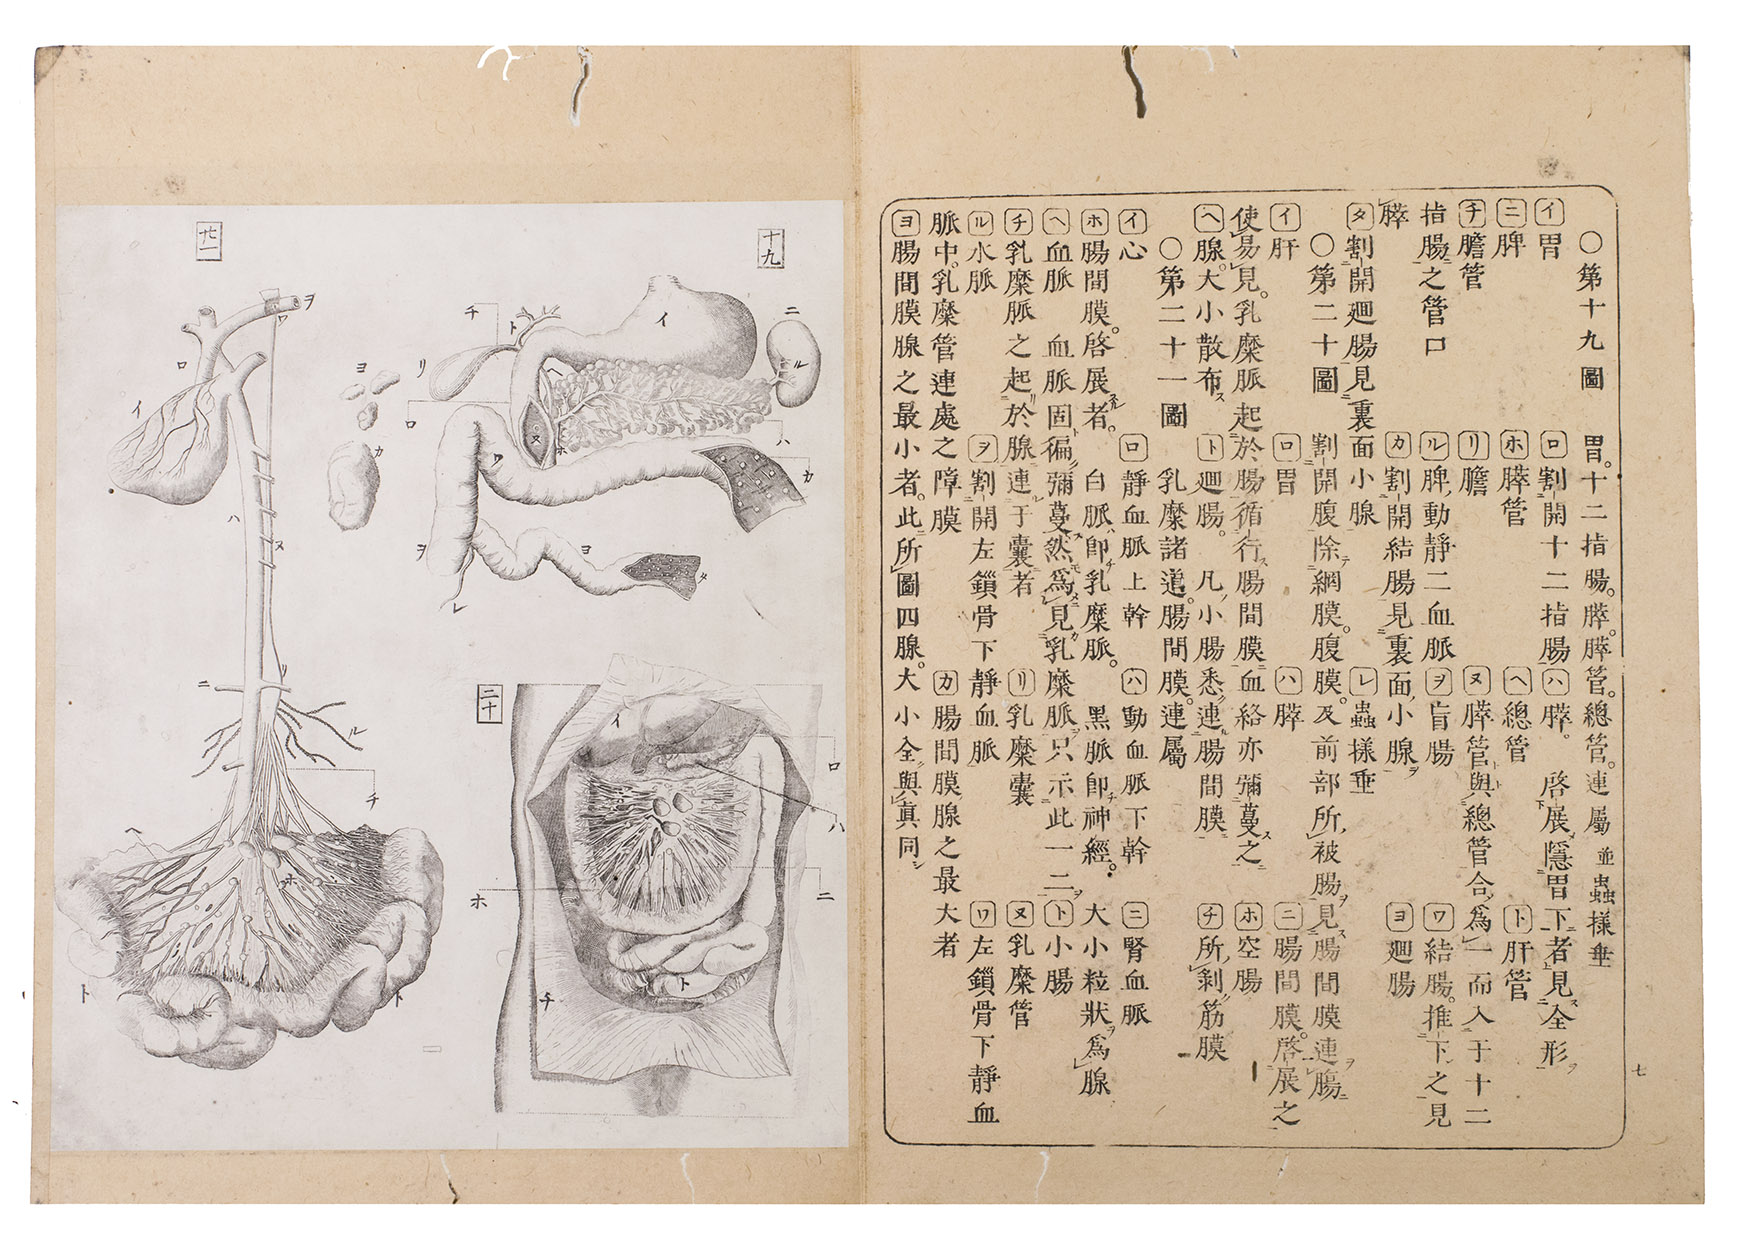 ○第十九圖 胃。十二指腸。膵。膵管。總管。連屬 並蟲樣垂
イ 胃 ロ 割開十二指腸 ハ 膵。 啓展隱胃下者見全形
ニ 脾 ホ 膵管 ヘ 總管 ト 肝管
チ 膽管 リ 膽 ヌ 膵管與總管合爲一而入于十二
指腸之管口 ル 脾動靜二血脈 ヲ 盲腸 ワ 結腸。推下之見
膵 カ 割開結腸見裏面小腺 ヨ 廻腸
タ 割開廻腸見裏面小腺 レ 蟲樣垂
○第二十圖 割開腹除網膜。腹膜。及前部所被腸見腸間膜連腸
イ 肝 ロ 胃 ハ 膵 ニ 腸間膜。啓展之
使易見。乳糜脈起於腸循行腸間膜血絡亦彌蔓之 ホ 空腸
ヘ 腺。大小散布 ト 廻腸。 凡小腸悉連腸間膜 チ 所剝筋膜
○第二十一圖 乳糜諸道。腸間膜。連屬
イ 心 ロ 靜血脈上幹 ハ 動血脈下幹 ニ 腎血脈
ホ 腸間膜。啓展者。 白脈卽乳糜脈。 黑脈卽神經。 大小粒狀爲腺
ヘ 血脈 血脈固徧彌蔓然爲見乳糜脈只示此一二 ト 小腸
チ 乳糜脈之起於腺連于囊者 リ 乳糜囊 ヌ 乳糜管
ル 水脈 ヲ 割開左鎖骨下靜血脈 ワ 左鎖骨下靜血
脈中。乳糜管連處之障膜 カ 腸間膜腺之最大者
ヨ 腸間膜腺之最小者。此所圖四腺。大小全與眞同
七
十九
ニ
イ
ル
ト
チ
リ
ヘ
ロ
ヌ
ハ
ホ
ワ
カ
ヲ
ヨ
タ
レ
二十
イ
ロ
ハ
ニ
ホ
ト
チ
廿一
ヲ
ワ
ロ
イ
ヨ
カ
ハ
ヌ
リ
ニ
ル
チ
ヘ
ホ
ト
ト